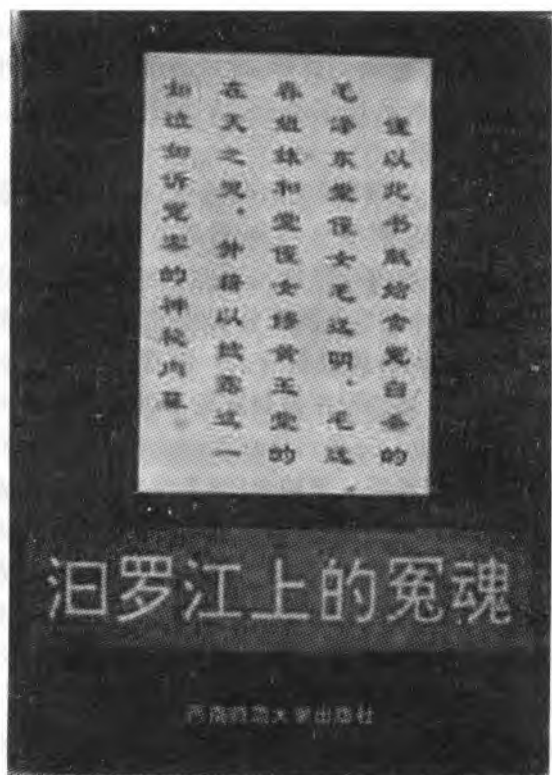 谨以此书献给含冤自杀的
毛泽东堂侄女毛远明、毛远
春姐妹和堂侄女婿黄王堂的
在天之灵，并藉以披露这一
如泣如诉冤案的神秘内幕
汨罗江上的冤魂
西南师范大学出版社